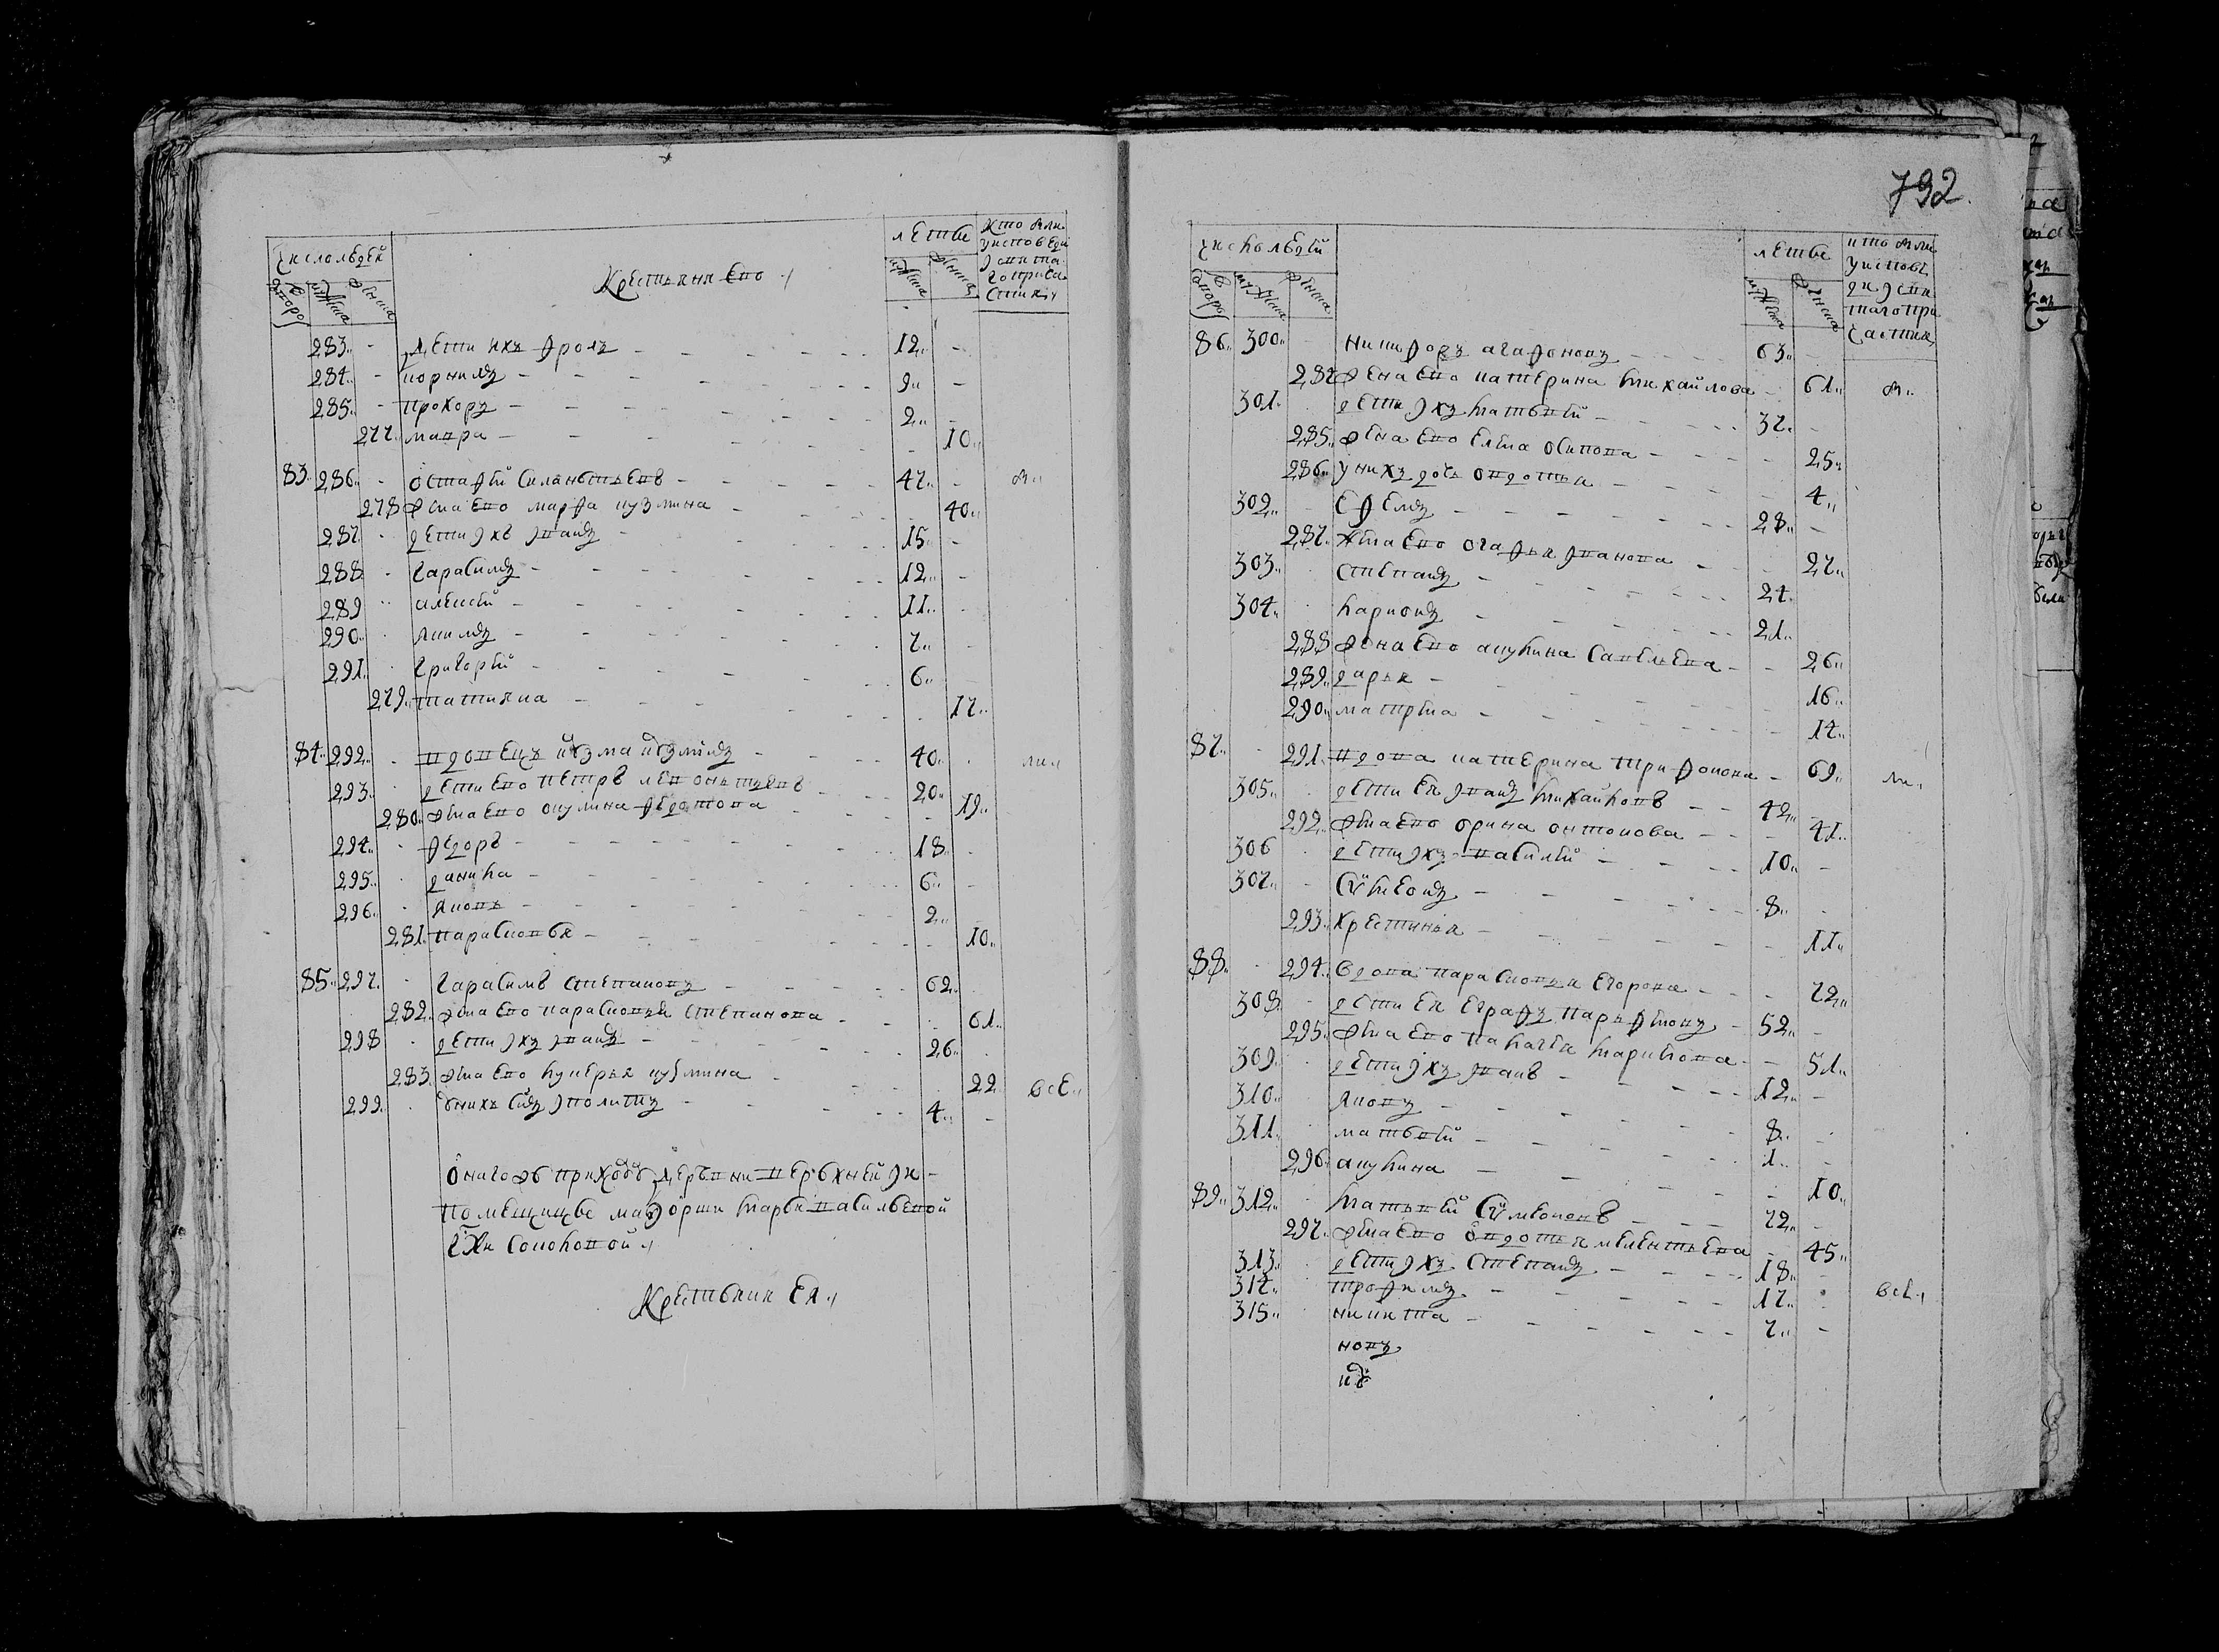 Число людей
Крестьяне ево
лета
дворов
мужеска
женска
мужеска
женска
283 дети их Фролъ 12
284 Корнилъ 9
285 Прохоръ 2
277 Мавра 10
83 286 Остафей Силантьевъ 47 были
278 жена ево Марфа Кузмина 40
287 дети ихъ Иванъ 15
288 Гарасимъ 12
289 Алексей 11
290 Якимъ 7
291 Григорей 6
279 Татияна 17
84 292 вдовецъ Кузма 40
293 дети ево Петръ Леонтьевъ 20
280 жена ево Окулина Федотова 19
294 Федоръ 18
295 Данила 6
296 Яковъ 2
281 Парасковья 10
85 297 Гарасимъ Степановъ 62
282 жена ево Парасковья Степанова 61
298 дети ихъ Иванъ 26
283 жена ево Лукерья Кузмина 22 все
299 у нихъ сынъ Иполитъ 4
Онаго жъ приходу деревни Верхней
помещицы маиорши Марьи Васильевой
Соковой
Крестьяне ея
792
число людей
лета
дворов
мужеска
женска
мужеска
женска
86 300 Никифоръ Агафоновъ 63
284 жена ево Катерина Михайлова 61 были
301 дети ихъ Матвей 37
285 жена ево Елена Осипова 25
286 у нихъ дочь Овдотья 4
302 Ефремъ 28
287 жена ево Огафья Иванова 27
303 Степанъ 24
304 Ларионъ 21
288 жена ево Акулина Савельева 26
289 Дарья 16
290 Матрена 14
87 291 вдова Катерина Трифонова 69
305 дети ея Иванъ Михайловъ 42
292 жена ево Орина Онтонова 41
306 дети ихъ Василей 10
307 Симеонъ 8
293 Хрестинья 11
88 294 вдова Парасковья Егорова 72
308 дети ея Евграфъ Парфеновъ 52
295 жена ево Палагея Марикова 51
309 дети ихъ Иванъ 12
310 Яковъ 8
311 Матвей 1
296 Акулина 10
89 312 Матвей Симеоновъ 72
297 жена ево Овдотья Мелентьева 45
313 дети ихъ Степанъ 18 все
314 Трофимъ 17
315 Никита 7